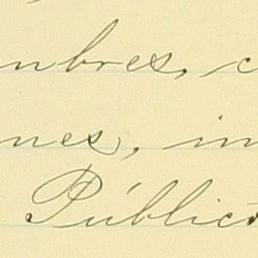 nbres, c
nes, in
Públic